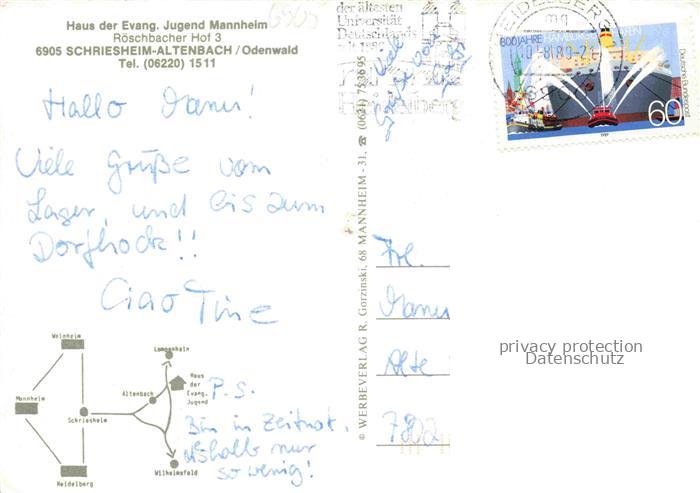 Haus der Evang. Jugend Mannheim
Röschbacher Hof 3
6905 SCHRIESHEIM-ALTENBACH / Odenwald
Tel. (06220) 1511
6905
Hallo Manu!
Viele Grüße vom
Lager, und bis zum
Dorfhock!!
Ciao Tine
P.S.
Bin in Zeitnot,
deshalb nur
so wenig!
Weinheim
Mannheim
Schriesheim
Heidelberg
Lampenhain
Altenbach
Haus
der
Evang.
Jugend
Wilhelmsfeld
© WERBEVERLAG R. Gorzinski, 68 MANNHEIM - 31, ☎ (0621) 753695
der ältesten
Universität
Deutschlands
Viele
Grüße
HEIDELBERG
mq
800 JAHRE HAMBURGER HAFEN
Deutsche Bundespost
60
1989
Frl.
Manu
Alte
privacy protection
Datenschutz